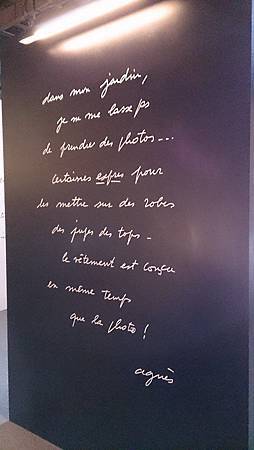 dans mon jardin,
je ne me lasse ps
de prendre des photos...
certaines exprès pour
les mettre sur des robes
des jupes des tops -
le vêtement est conçu
en même temps
que la photo !
agnès